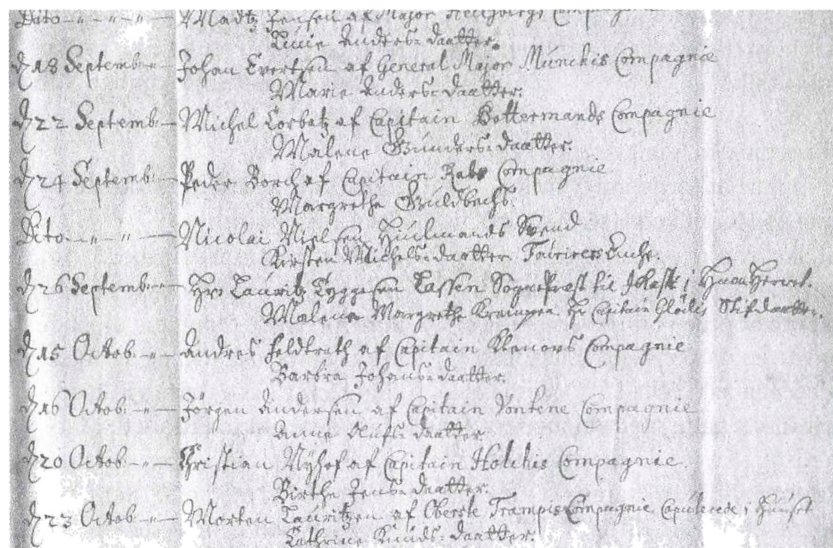 Dito — " — " — Madtz Jensen af Major Compagnie
Anders-daatter.
d 18 Septemb — Johan Evertsen af General Major Münchis Compagnie
Maria Anders-daatter.
d 22 Septemb — Michel Lorbatz af Capitain Bottermands Compagnie
Malene Gunders-daatter.
d 24 Septemb — Peder Borch af Capitain Rabs Compagnie
Margrethe Guldbachs
Dito — " — " — Nicolai Nielsen Huulmands Svend
Kirsten Michels-daatter
d 26 Septemb — Hr: Lauritz Tyggesen Lassen Sognepræst til i Herret.
Malene Margrethe Hr Capitain Stifdaatter.
d 15 Octob — Andres Feldtrath af Capitain Klenovs Compagnie
Barbra Johans-daatter.
d 16 Octob — Jørgen Andersen af Capitain Compagnie
Anne Olufs-daatter
d 20 Octob — Christian Nyhof af Capitain Holckis Compagnie.
Birthe Jens-daatter.
d 23 Octob — Morten Lauritzen af Oberste Trampis Compagnie i Huuset
Cathrine Knuds-daatter.